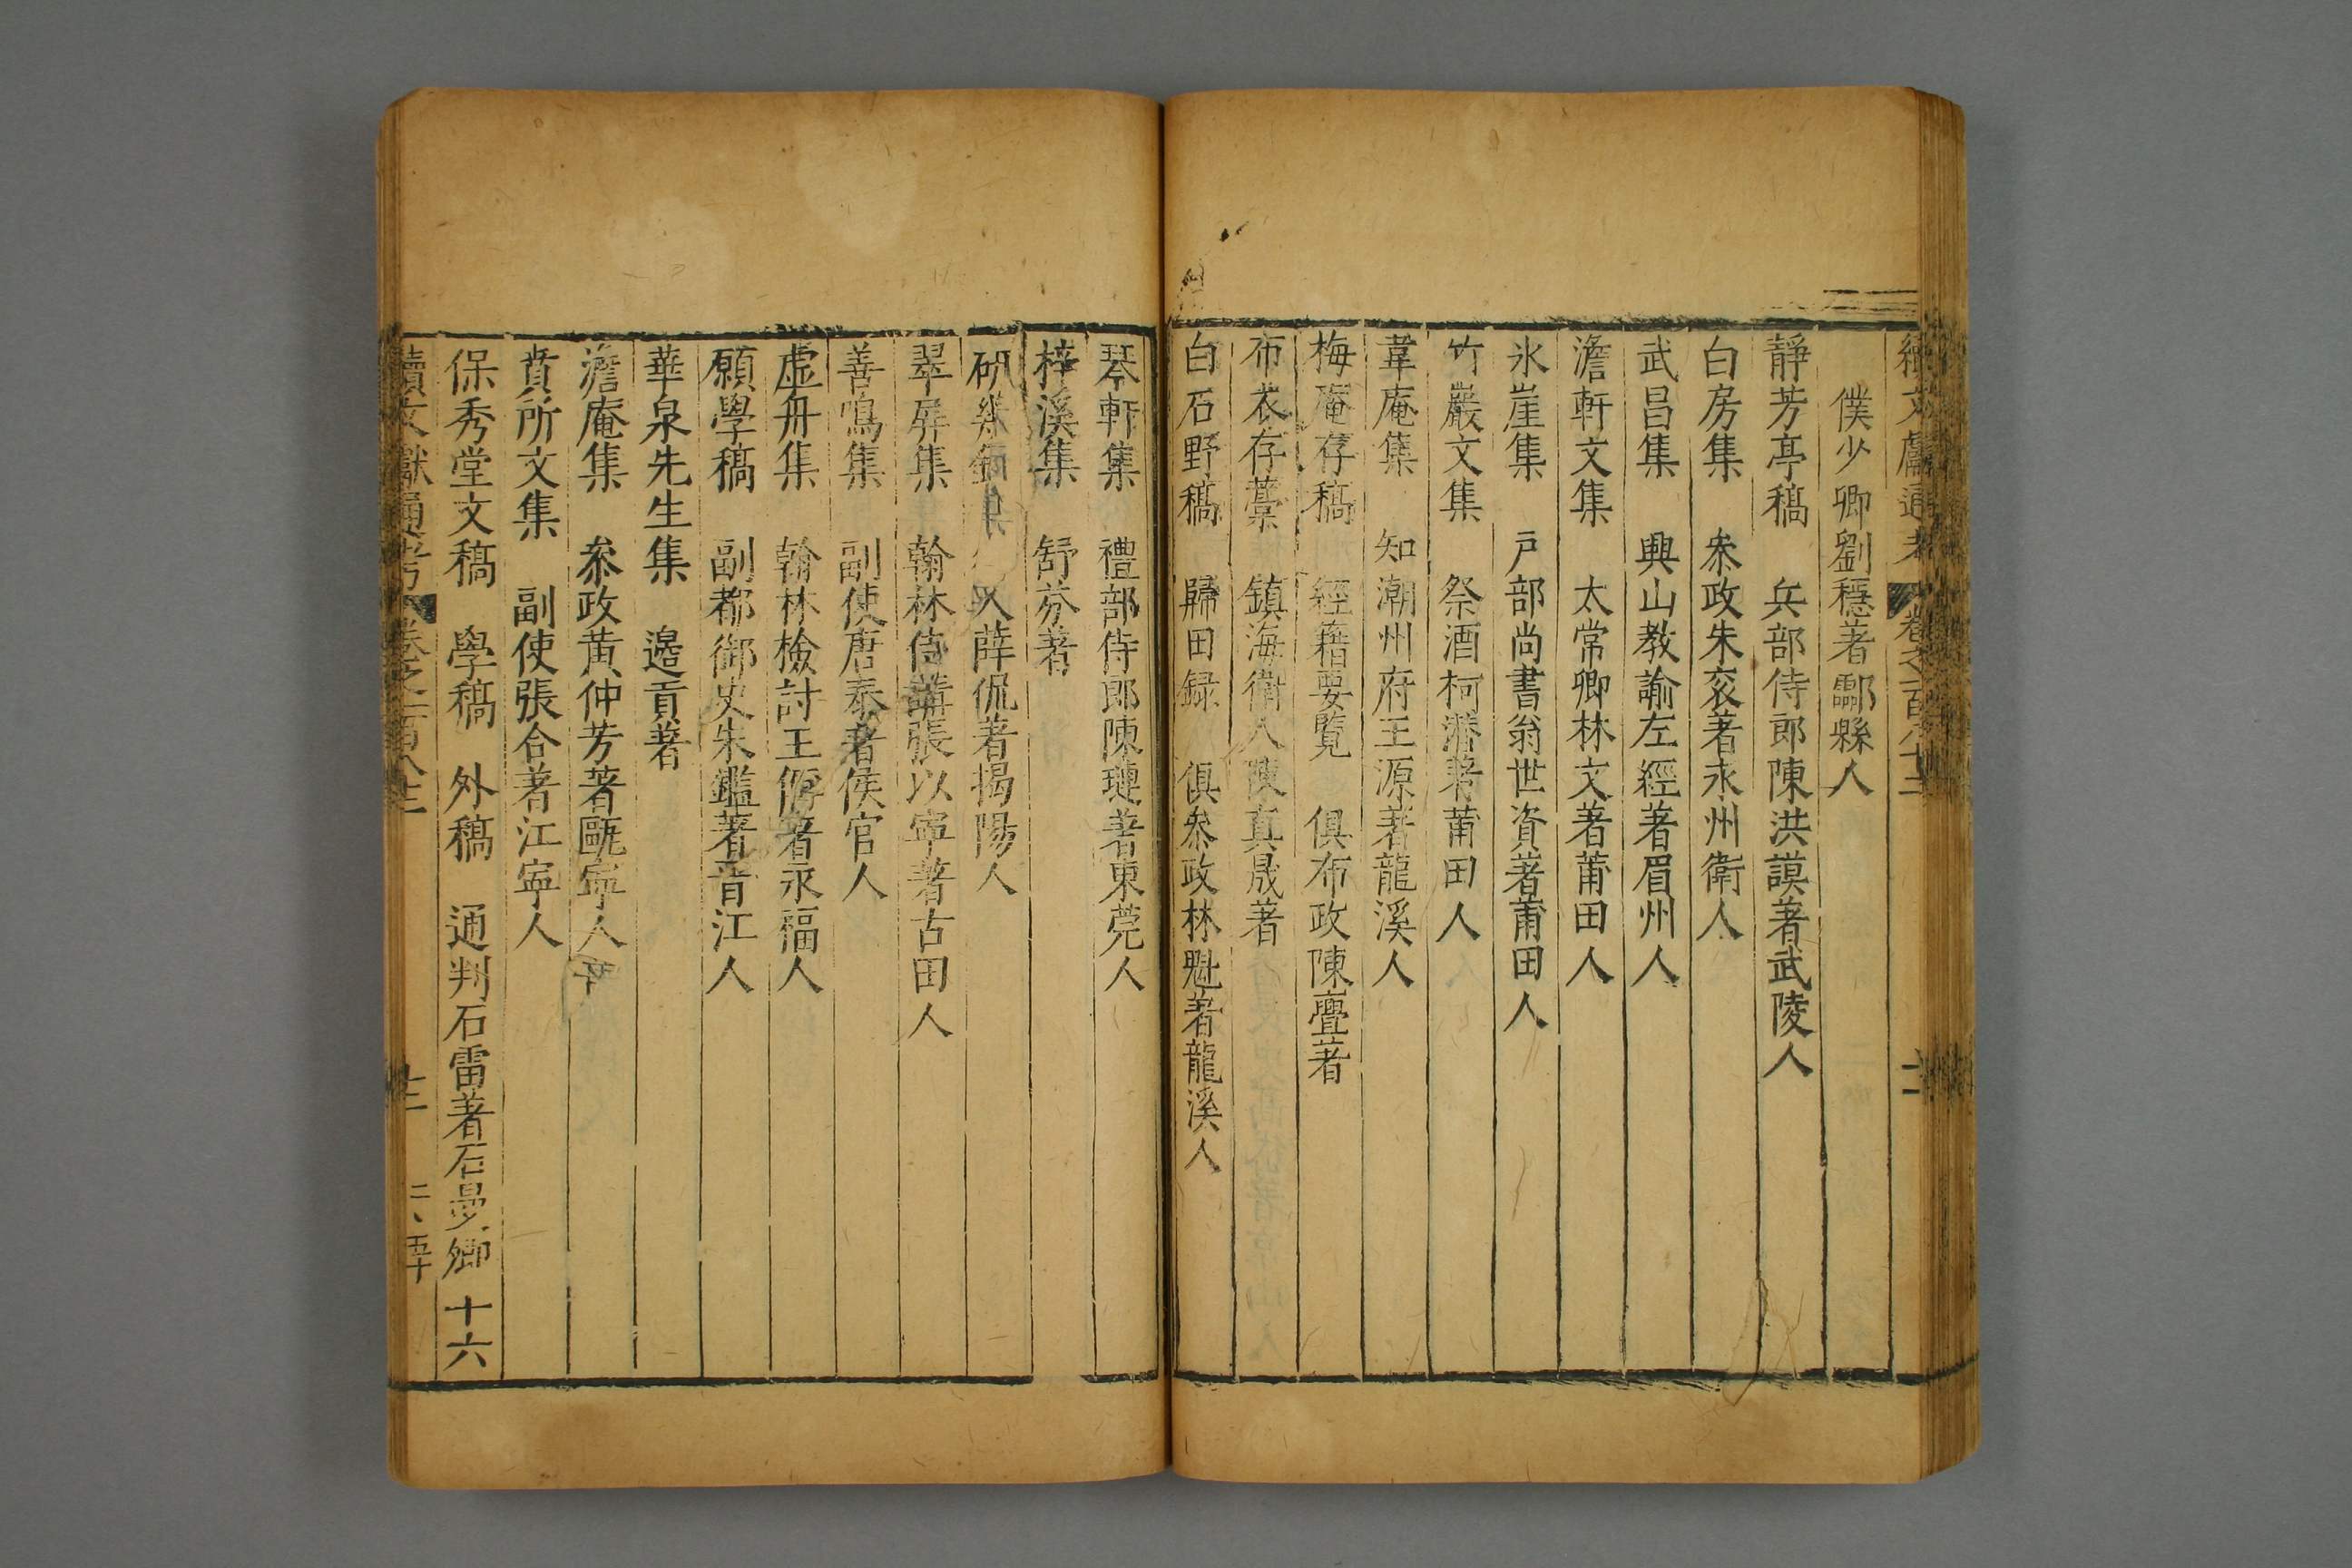 續文獻通考 卷之一百八十三
僕少卿劉穩著酃縣人
靜芳亭稿 兵部侍郎陳洪謨著武陵人
白房集 叅政朱衮著永州衛人
武昌集 興山教諭左經著眉州人
澹軒文集 太常卿林文著莆田人
氷崖集 戸部尚書翁世資著莆田人
竹巖文集 祭酒柯潛著莆田人
葦庵集 知潮州府王源著龍溪人
梅庵存稿 經籍要覽 俱布政陳亹著
布衣存藁 鎮海衛人陳真晟著
白石野稿 歸田録 俱叅政林魁著龍溪人
琴軒集 禮部侍郎陳璉著東莞人
梓溪集 舒芬著
研幾録 人薛侃著揭陽人
翠屏集 翰林侍講張以寕著古田人
善鳴集 副使唐泰著侯官人
虛舟集 翰林檢討王偁著永福人
願學稿 副都御史朱鑑著晉江人
華泉先生集 邉貢著
澹庵集 叅政黄仲芳著甌寕人
賁所文集 副使張合著江寕人
保秀堂文稿 學稿 外稿 通判石雷著石曼卿 十六
續文獻通考 卷之一百八十三 十二